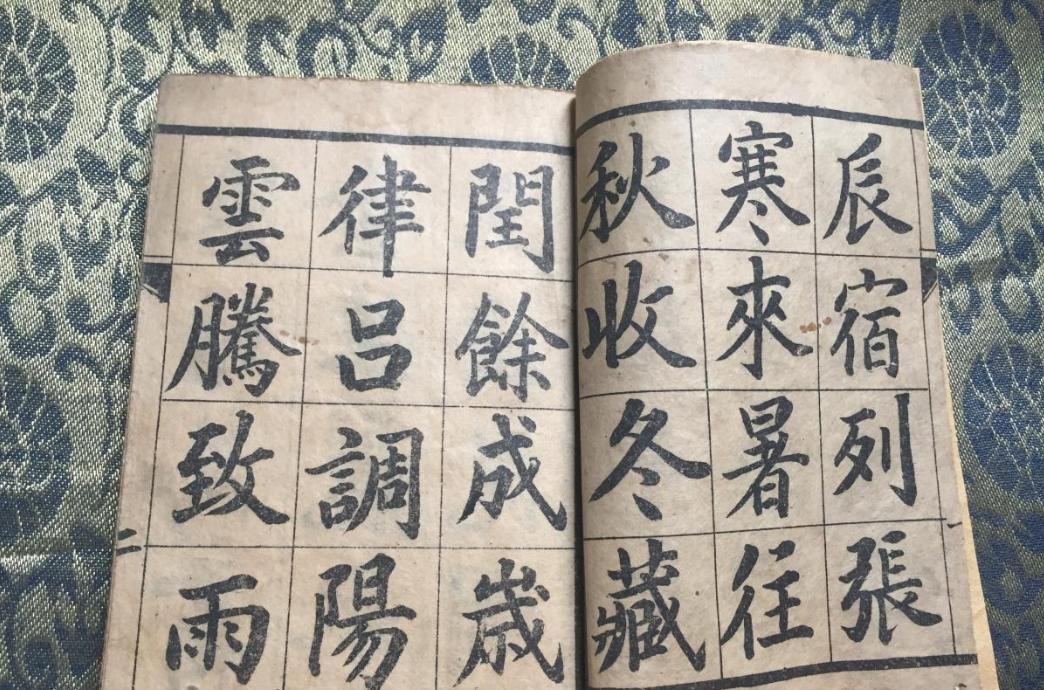 辰宿列張
寒來暑往
秋收冬藏
閏餘成歲
律呂調陽
雲騰致雨
一
二